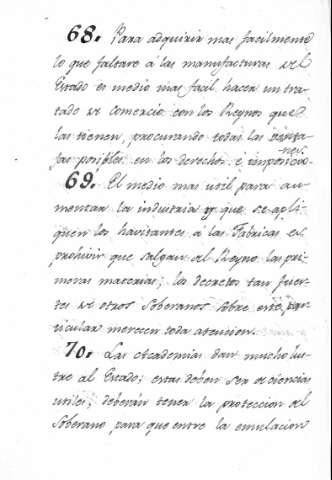 68. Para adquirir mas facilmente
lo que faltare á las manufacturas del
Estado es medio mas facil hacer un tra-
tado de comercio con los Reynos que
las tienen, procurando todas las venta-
jas posibles en los derechos é imposicio-
nes.
69. El medio mas util para au-
mentar la industria y que se apli-
quen los havitantes á las Fabricas es
prohivir que salgan del Reyno las pri-
meras materias; los decretos tan fuer-
tes de otros Soberanos sobre este par-
ticular merecen toda atencion.
70. Las Academias dan mucho lus-
tre al Estado; estas deben ser de ciencias
utiles; deberán tener la proteccion del
Soberano, para que entre la emulacion